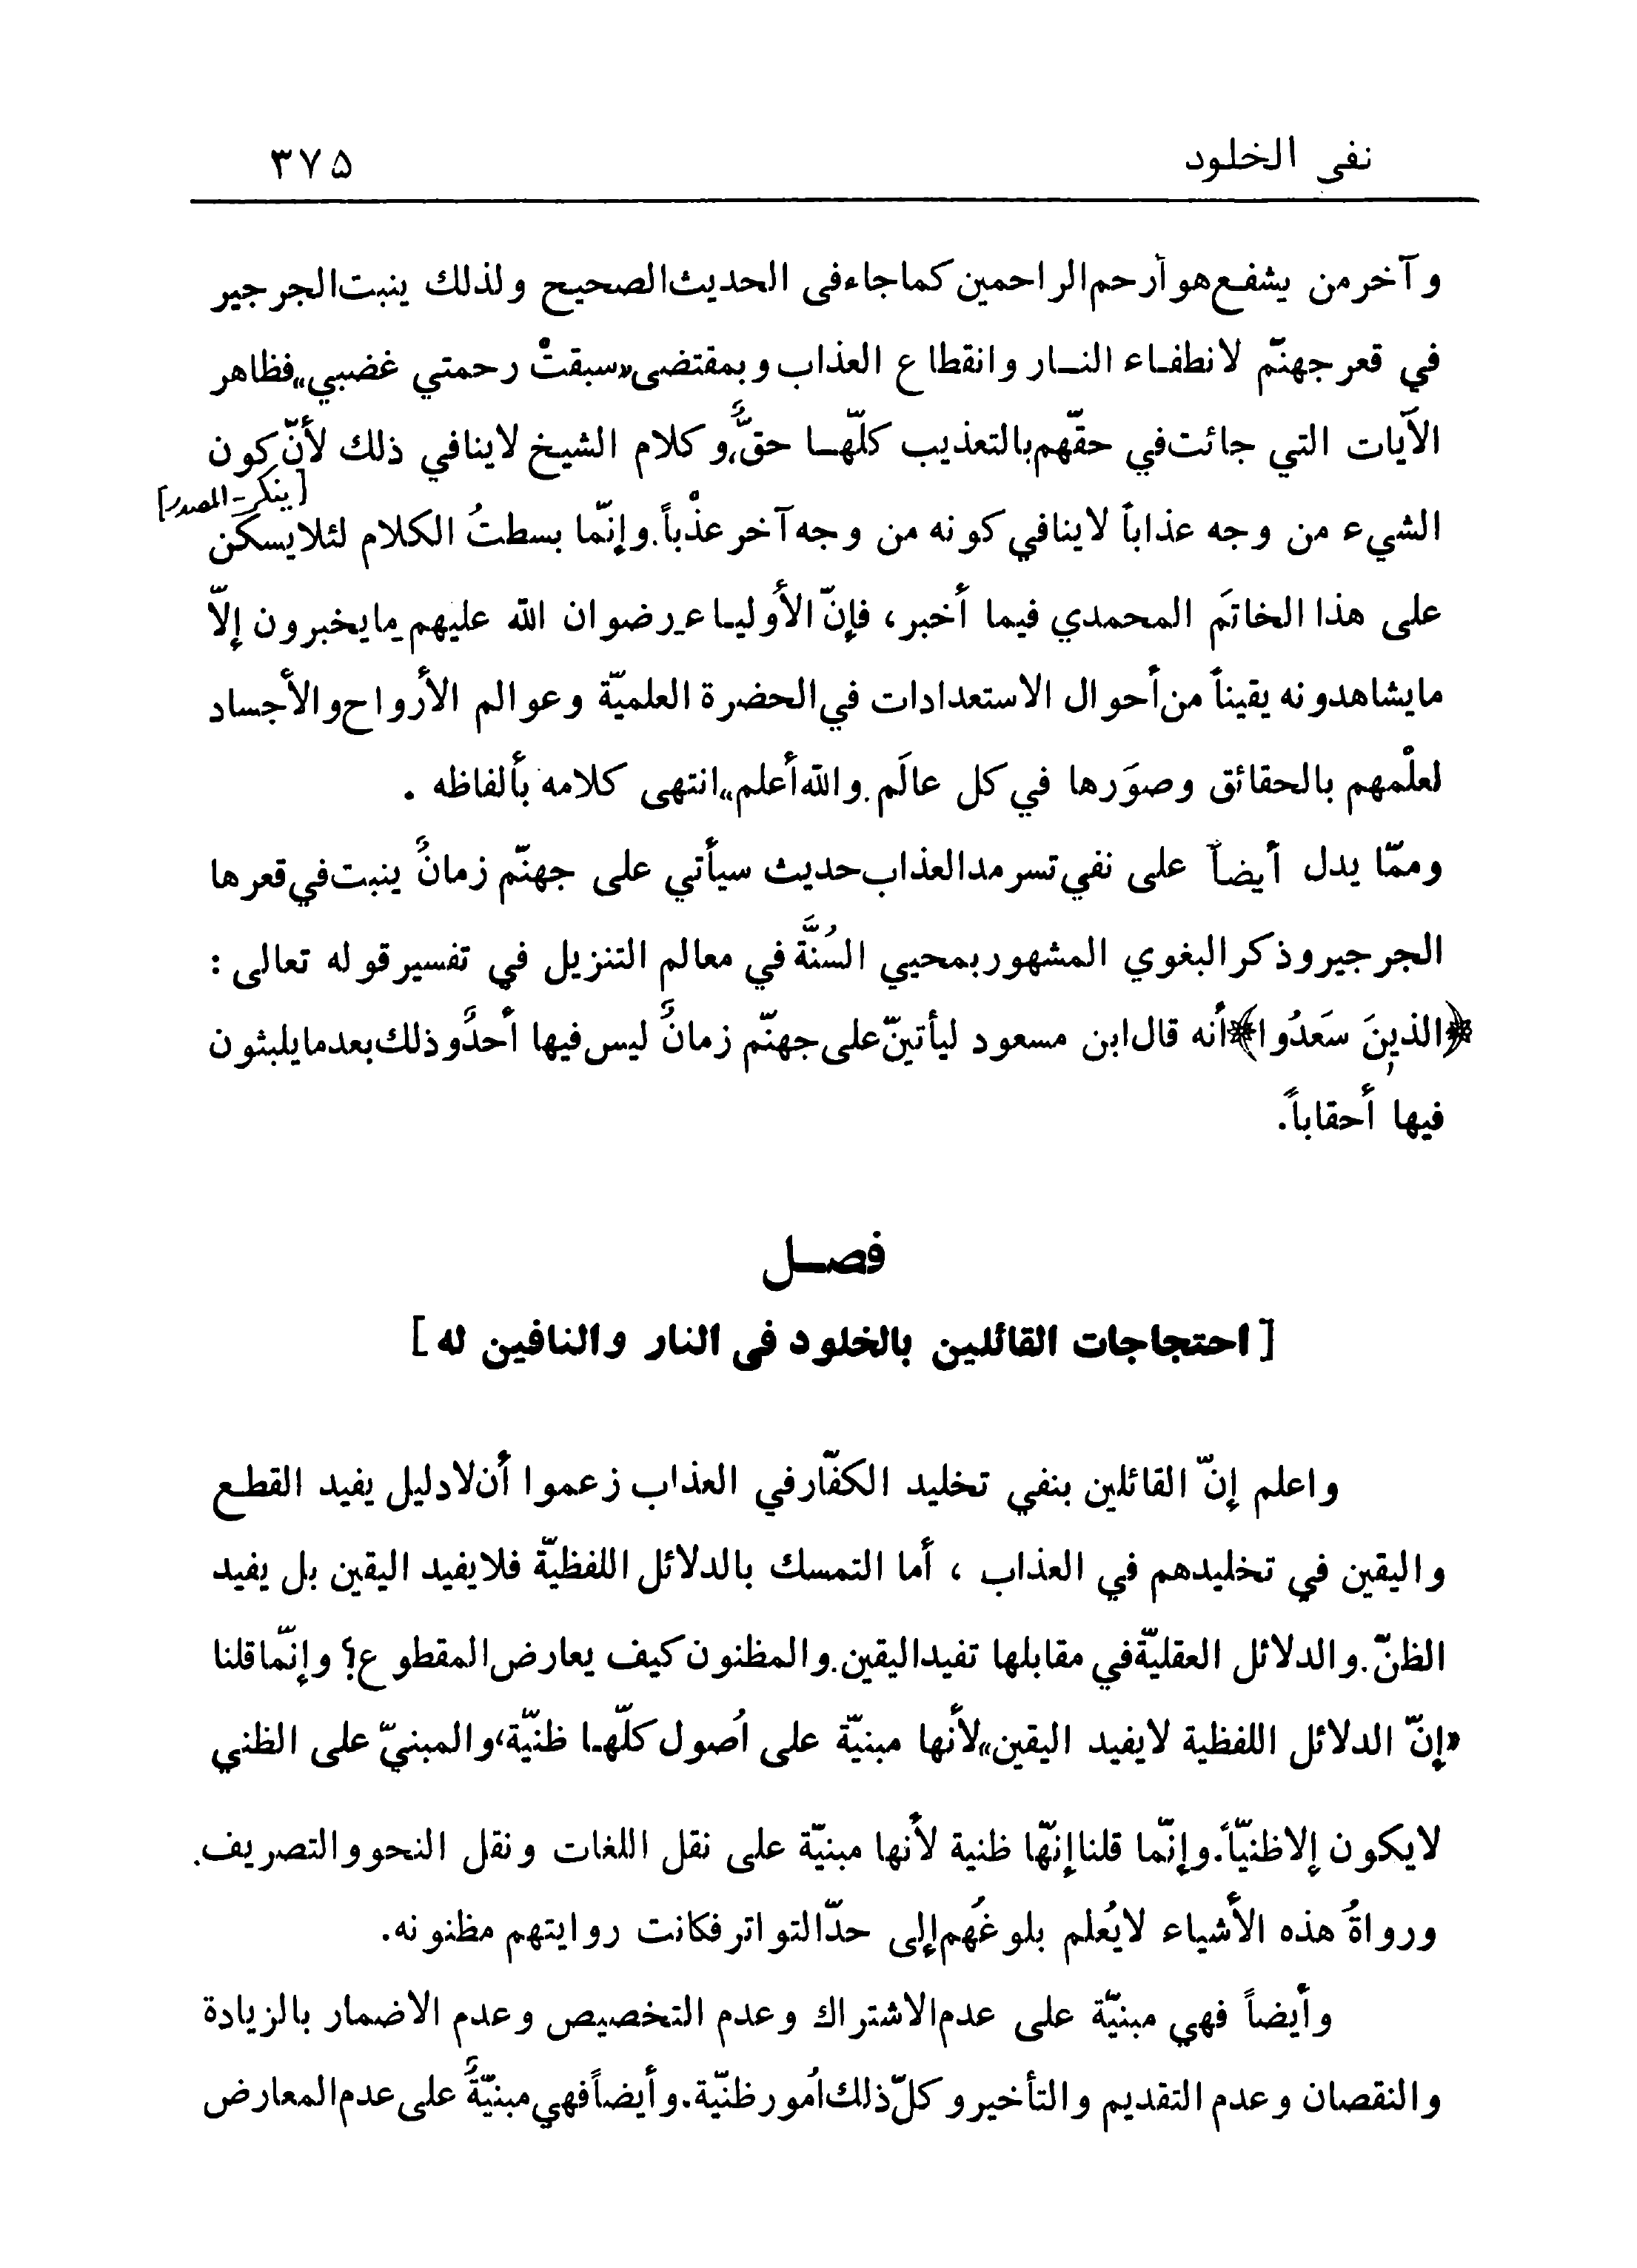 نفى الخلود ٣٧۵
وآخر من يشفع هو أرحم الراحمين كما جاء فى الحديث الصحيح ولذلك ينبت الجرجير
في قعر جهنّم لانطفاء النار وانقطاع العذاب وبمقتضى «سبقتْ رحمتي غضبي» فظاهر
الآيات التي جائت في حقّهم بالتعذيب كلّها حقٌّ، وكلام الشيخ لاينافي ذلك لأنّ كون
[ينكر - المصدر]
الشيء من وجه عذاباً لاينافي كونه من وجه آخر عذْباً. وإنّما بسطتُ الكلام لئلا يسكن
على هذا الخاتَم المحمدي فيما أخبر، فإنّ الأولياء ـ رضوان الله عليهم ـ ما يخبرون إلاّ
ما يشاهدونه يقيناً من أحوال الاستعدادات في الحضرة العلميّة وعوالم الأرواح والأجساد
لعلْمهم بالحقائق وصوَرها في كل عالَم. والله أعلم» انتهى كلامه بألفاظه .
وممّا يدل أيضاً على نفي تسرمد العذاب حديث سيأتي على جهنّم زمانٌ ينبت في قعرها
الجرجير وذكر البغوي المشهور بمحيي السُنَّة في معالم التنزيل في تفسير قوله تعالى :
﴿الذينَ سَعدُوا﴾ أنه قال ابن مسعود ليأتينّ على جهنّم زمانٌ ليس فيها أحدٌ وذلك بعد ما يلبثون
فيها أحقاباً.
فصل
[ احتجاجات القائلين بالخلود فى النار والنافين له ]
واعلم إنّ القائلين بنفي تخليد الكفّار في العذاب زعموا أن لادليل يفيد القطع
واليقين في تخليدهم في العذاب ، أما التمسك بالدلائل اللفظيّة فلا يفيد اليقين بل يفيد
الظنّ. والدلائل العقليّة في مقابلها تفيد اليقين. والمظنون كيف يعارض المقطوع؟ وإنّما قلنا
«إنّ الدلائل اللفظية لايفيد اليقين» لأنها مبنيّة على اُصول كلّها ظنيّة، والمبنيّ على الظني
لايكون إلا ظنيّاً. وإنّما قلنا إنّها ظنية لأنها مبنيّة على نقل اللغات ونقل النحو والتصريف.
ورواةُ هذه الأشياء لايُعلم بلوغُهم إلى حدّ التواتر فكانت روايتهم مظنونه.
وأيضاً فهي مبنيّة على عدم الاشتراك وعدم التخصيص وعدم الاضمار بالزيادة
والنقصان وعدم التقديم والتأخير وكلّ ذلك اُمور ظنيّة. وأيضاً فهي مبنيّةٌ على عدم المعارض